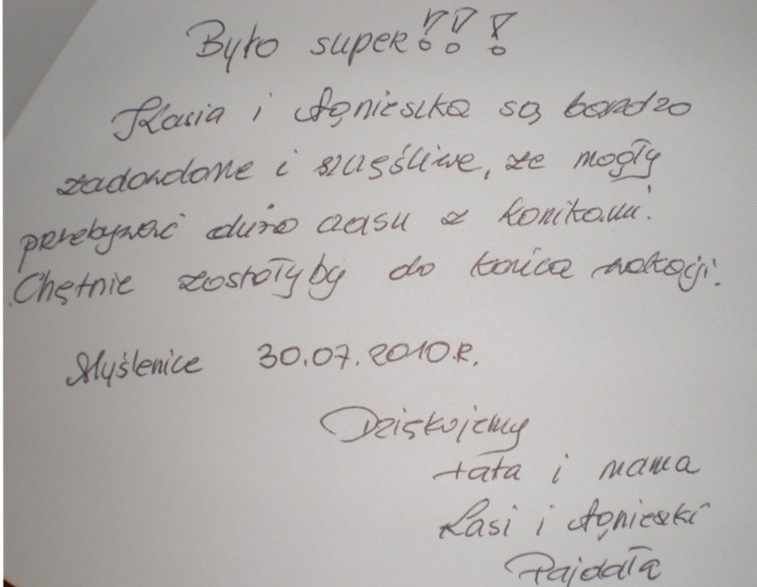 Było super!!!
Kasia i Agnieszka są bardzo
zadowolone i szczęśliwe, że mogły
przebywać dużo czasu z konikami!
Chętnie zostałyby do końca wakacji!
Myślenice 30.07.2010R.
Dziękujemy
tata i mama
Kasi i Agnieszki